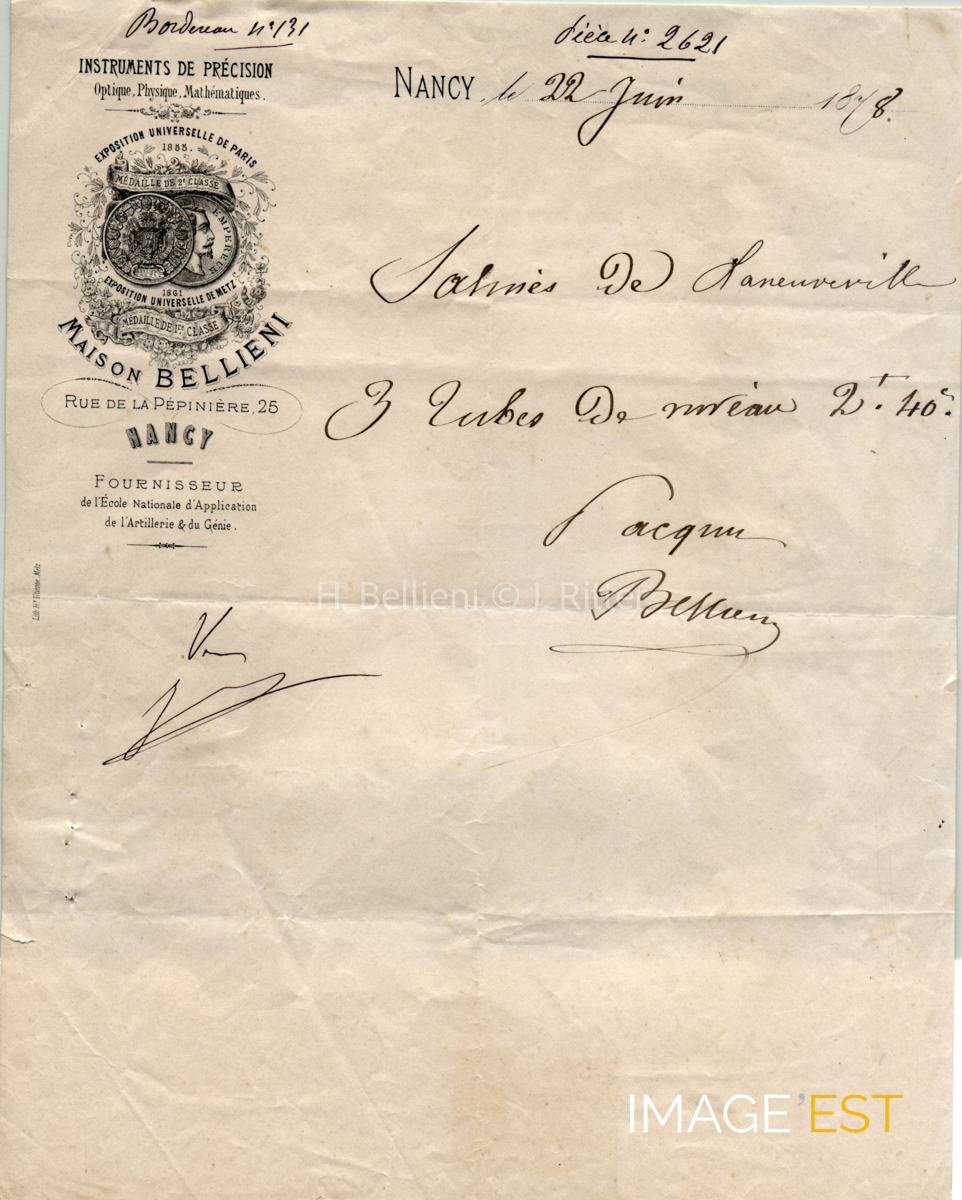 Bordereau n° 131
Pièce n° 2621
INSTRUMENTS DE PRÉCISION
Optique, Physique, Mathématiques.
EXPOSITION UNIVERSELLE DE PARIS
1855.
MÉDAILLE DE 2e CLASSE
EMPEREUR
1861
EXPOSITION UNIVERSELLE DE METZ
MÉDAILLE DE 1re CLASSE
MAISON BELLIENI
RUE DE LA PÉPINIÈRE, 25
NANCY
FOURNISSEUR
de l'École Nationale d'Application
de l'Artillerie & du Génie.
Lith. Hy Etienne, Metz
NANCY, le 22 Juin 1878.
Salines de Laneuveville
3 tubes de niveau 2f. 40c.
Pacquu
Bellieni
H. Bellieni © J.
Vu
IMAGE'EST